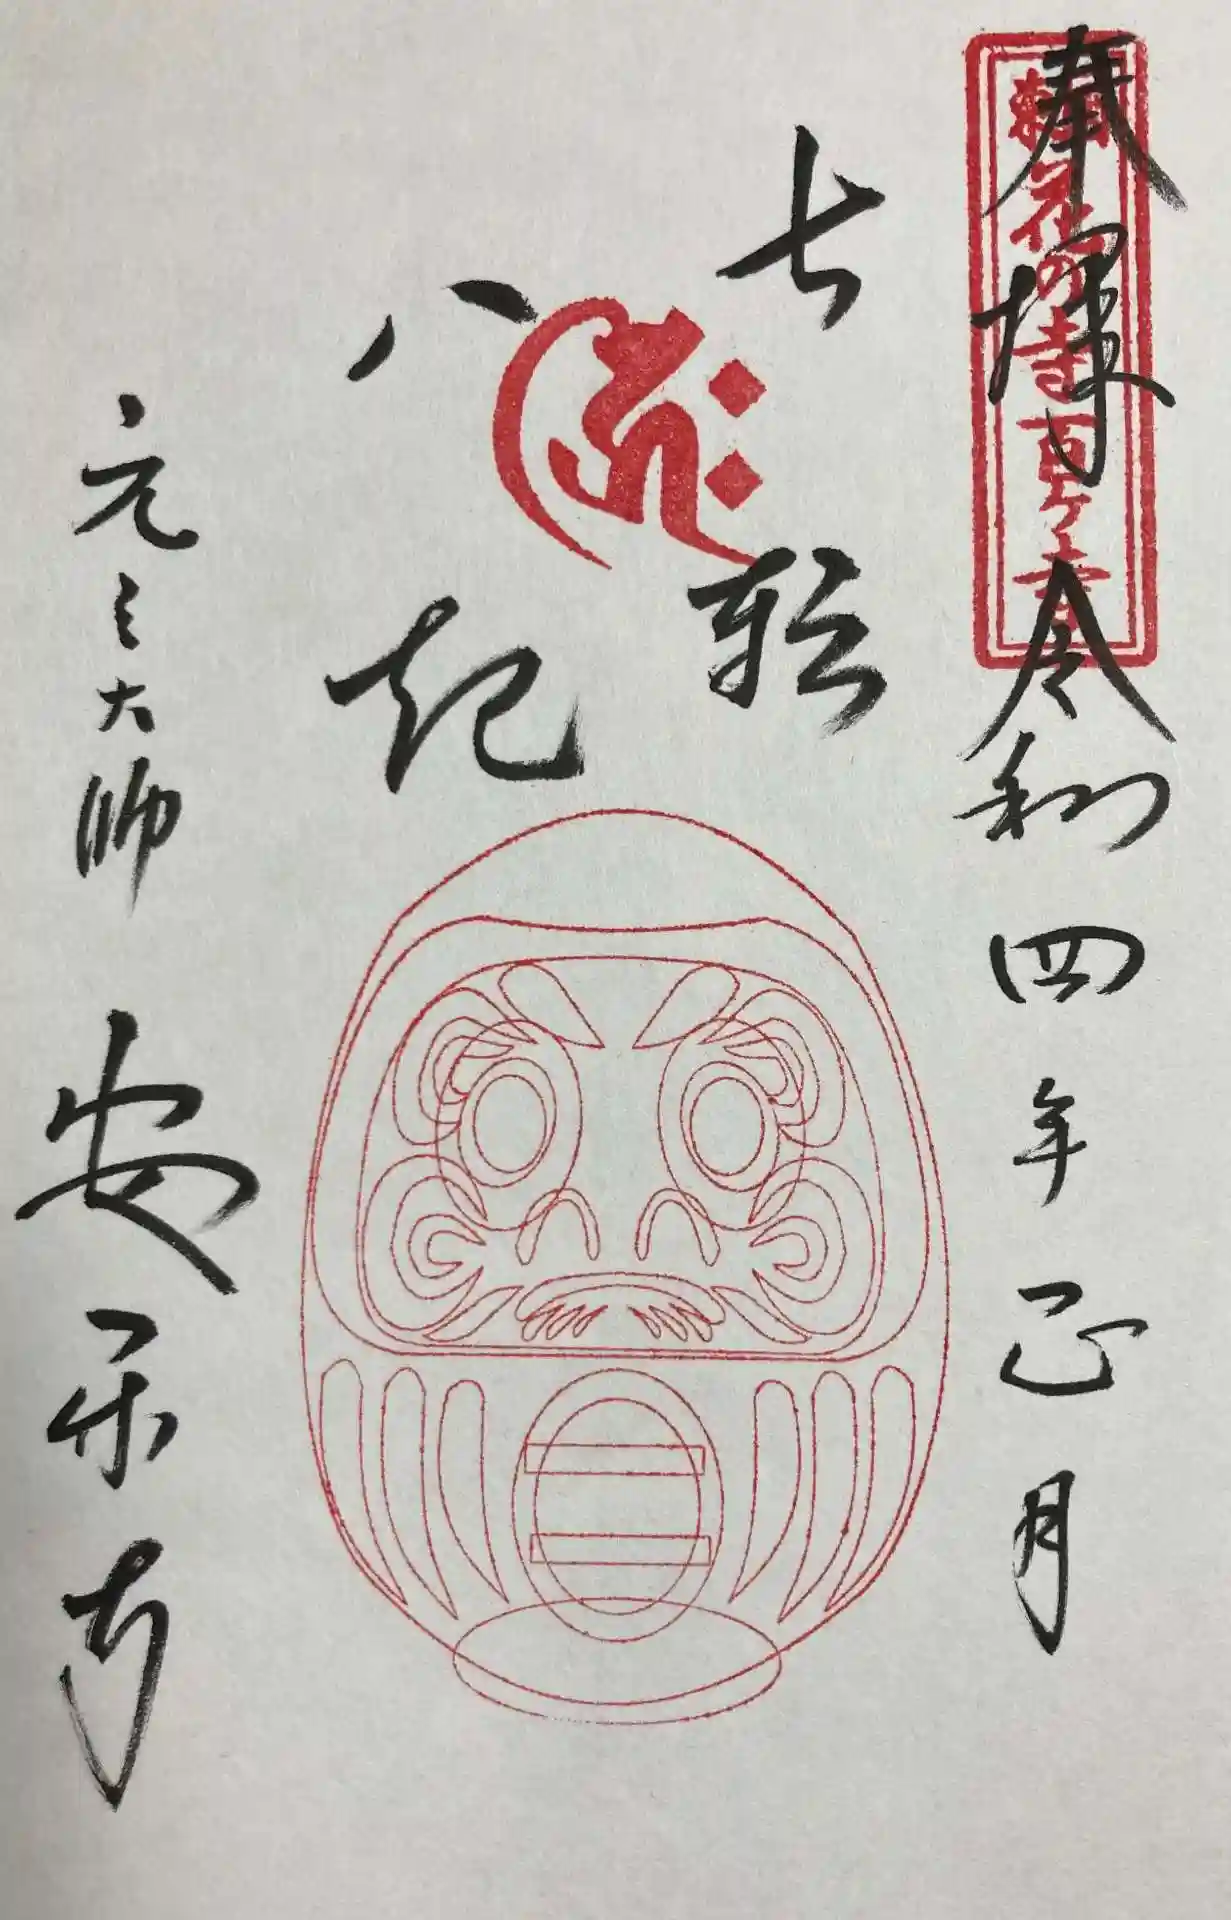 奉拝 令和四年正月
関東花の寺百ヶ寺
七転
八起
元三大師 安楽寺